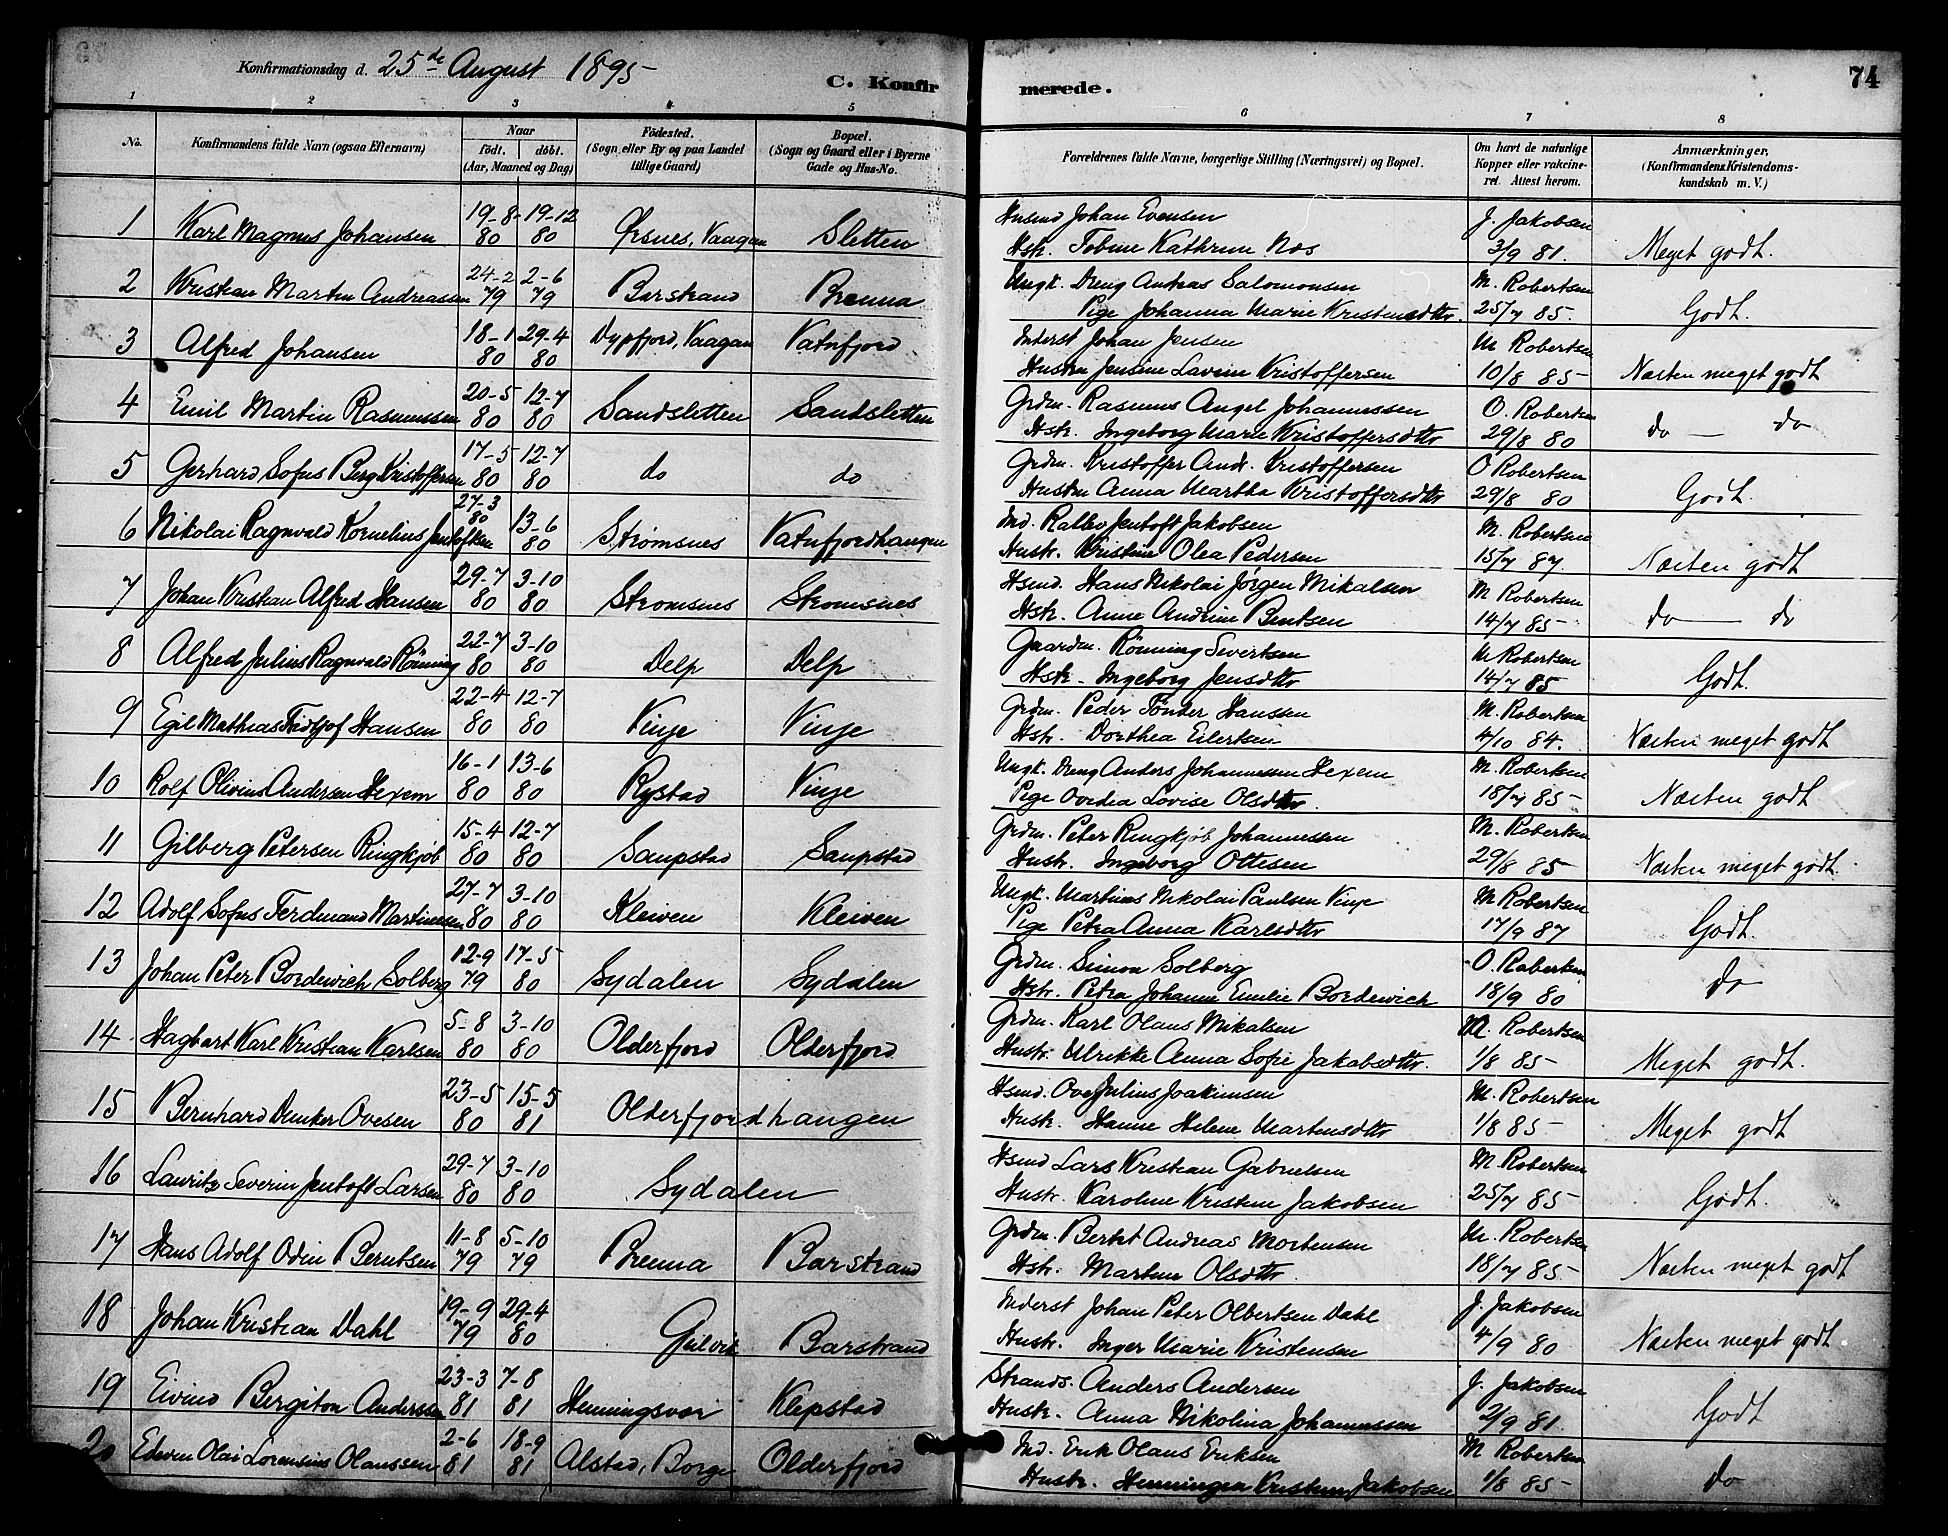 Konfirmationsdag d. 25de August 1895
C. Konfir
merede.
74
1 2 3 4 5 6 7 8
No.
Konfirmandens fulde Navn (ogsaa Efternavn)
Naar
födt. döbt.
(Aar, Maaned og Dag)
Födested.
(Sogn eller By og paa Landet
tillige Gaard)
Bopæl.
(Sogn og Gaard eller i Byerne
Gade og Hus-No.
Forældrenes fulde Navne, borgerlige Stilling (Næringsvei) og Bopæl.
Om havt de naturlige
Kopper eller vakcine-
ret. Attest herom.
Anmærkninger,
(Konfirmandens Kristendoms-
kundskab m. V.)
1 Karl Magnus Johansen 19-8 80 19-12 80 Ørsnes, Vaagan Sletten
Husmd Johan Evensen J. Jakobsen
Hstr. Tobine Kathrine Næs 3/9 81. Meget godt.
2 Kristian Martin Andreassen 24-2 79 2-6 79 Barstrand Brenna
Ungk. Dreng Andreas Salomonsen M. Robertsen
Pige Johanna Marie Kristensdttr. 25/7 85. Godt.
3 Alfred Johansen 18-1 80 29-4 80 Dypfjord, Vaagan Vatnfjord
Inderst Johan Jensen M Robertsen
Hustru Jensine Lavine Kristoffersen 10/8 85 Næsten meget godt
4 Emil Martin Rasmussen 20-5 80 12-7 80 Sandsletten Sandsletten
Grdm. Rasmus Angel Johannessen O. Robertsen
Hstr. Ingeborg Marie Kristoffersdttr 29/8 80 do — do
5 Gerhard Sofus Berg Kristoffersen 17-5 80 12-7 80 do do
Grdm. Kristoffer Andr. Kristoffersen O Robertsen
Hustru Anna Martha Kristoffersdttr 29/8 80 Godt.
6 Nikolai Ragnvald Kornelius Jentoftsen 27-3 80 13-6 80 Strømsnes Vatnfjordhaugen
Ind. Jentoft Jakobsen M. Robertsen
Hustr. Kristine Olea Pedersen 15/7 87. Næsten godt
7 Johan Kristian Alfred Hansen 29-7 80 3-10 80 Strømsnes Strømsnes
Hsmd. Hans Nikolai Jørgen Mikalsen M Robertsen
Hstr. Anne Andrine Bentsen 14/7 85 do — do
8 Alfred Julius Ragnvald Rönning 22-7 80 3-10 80 Delp Delp
Gaardm. Rönning Severtsen M Robertsen
Hstr. Ingeborg Jensdttr 14/7 85 Godt.
9 Egil Mathias Fridtjof Hansen 22-4 80 12-7 80 Vinje Vinje
Grdm. Peder Tönder Hanssen M. Robertsen
Hstr. Dorthea Eilertsen 4/10 84. Næsten meget godt
10 Rolf Olivius Andersen Hexem 16-1 80 13-6 80 Rystad Vinje
Ungk. Dreng Anders Johannessen Hexem M. Robertsen
Pige Ovedia Lovise Olsdttr. 18/7 85 Næsten godt
11 Gilberg Petersen Ringkjöb 15-4 80 12-7 80 Saupstad Saupstad
Grdm. Peter Ringkjøb Johannessen M. Robertsen
Hustr. Ingeborg Ottesen 29/8 85 Næsten meget godt.
12 Adolf Sofus Ferdinand Martinsen 27-7 80 3-10 80 Kleiven Kleiven
Ungk. Martinus Nikolai Paulsen Vinje M Robertsen
Pige Petra Anna Karlsdttr 17/9 87 Godt.
13 Johan Peter Bordewich Solberg 12-9 79 17-5 80 Sydalen Sydalen
Grdm. Simon Solberg O. Robertsen
Hstr. Petra Johanne Emilie Bordewich 18/9 80 do
14 Hagbart Karl Kristian Karlsen 5-8 80 3-10 80 Olderfjord Olderfjord
Grdm. Karl Olaus Mikalsen M. Robertsen
Hustr. Ulrikke Anna Sofie Jakobsdttr. 1/8 85 Meget godt.
15 Bernhard Dunker Ovesen 23-5 80 15-5 81 Olderfjordhaugen
Hsmd. Ove Julius Joakimsen M. Robertsen
Hustr. Hanne Helene Martensdttr 1/8 85 Meget godt
16 Lauritz Severin Jentoft Larsen 29-7 80 3-10 80 Sydalen
Hsmd Lars Kristian Gabrielsen M Robertsen
Hustr. Karoline Kristine Jakobsen 25/7 85 Godt.
17 Hans Adolf Odin Berntsen 11-8 79 5-10 79 Brenna Barstrand
Grdm. Bernt Andreas Mortensen M. Robertsen
Hstr. Martine Olsdttr. 18/7 85 Næsten meget godt
18 Johan Kristian Dahl 19-9 79 29-4 80 Gulvik Barstrand
Inderst Johan Peter Olbertsen Dahl J. Jakobsen
Hustr. Inger Marie Kristensen 4/9 80 Næsten meget godt
19 Eivind Bergiton Andersen 23-3 81 7-8 81 Henningsvær Klepstad
Strands. Anders Andersen J. Jakobsen
Hustr. Anna Nikolina Johannessen 2/9 81. Godt
20 Edevin Olai Lorensius Olaussen 2-6 81 18-9 81 Alstad, Borge Olderfjord
Ind. Erik Olaus Eriksen M Robertsen
Hustr. Henningea Kristine Jakobsen 1/8 85 do